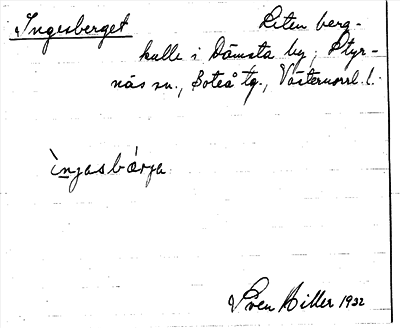 Ingesberget Liten berg-
kulle i Dämsta by, Styr-
näs sn., Boteå tg., Västernorrl. l.
ìnjasbærja
Sven Hiller 1932